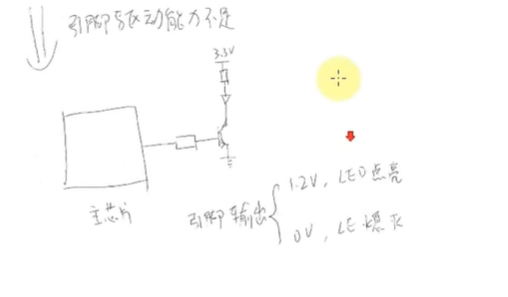 引脚驱动能力不足
3.3V
主芯片
引脚输出
1.2V, LED点亮
0V, LE熄灭